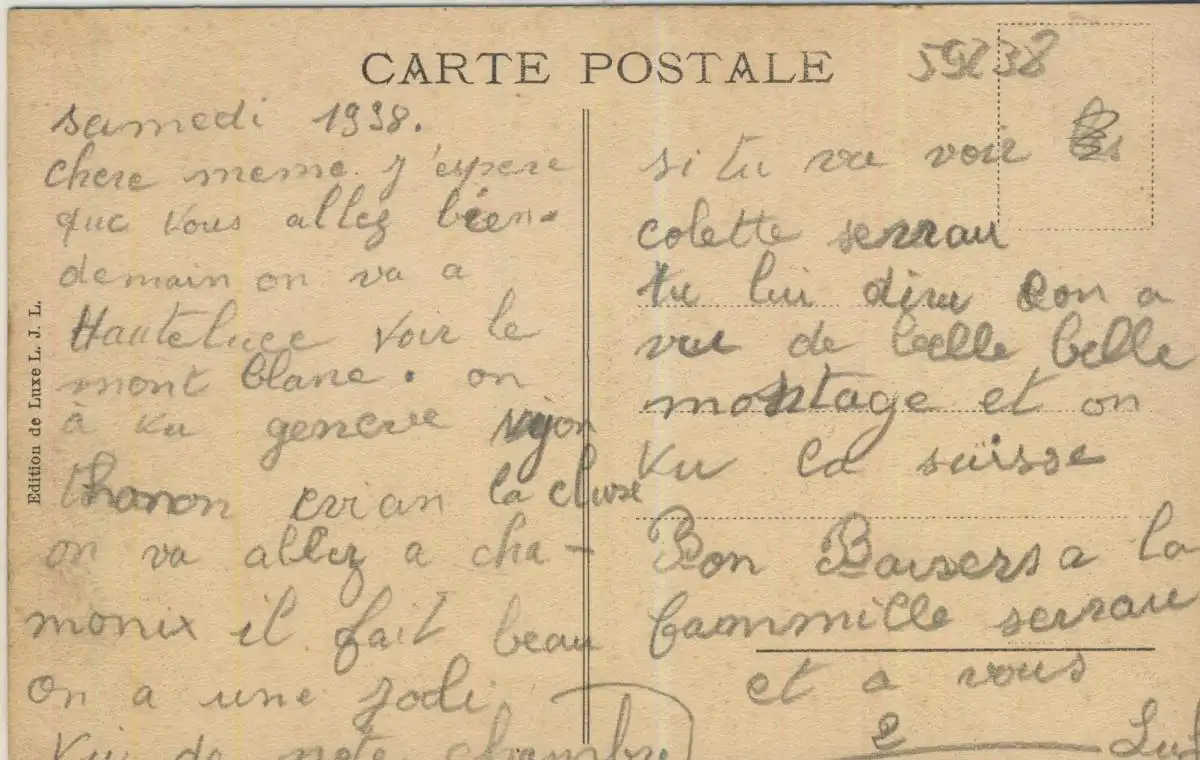 CARTE POSTALE
59238
samedi 1938.
chere meme. j'espere
que vous allez bien.
demain on va a
Hauteluce voir le
mont blanc. on
à vu geneve nyon
thonon evian la cluse
on va allez a cha-
monix il fait beau
on a une joli
vu de note chambre
si tu va voir
colette serrau
tu lui dira con a
vu de belle belle
montage et on
vu la suisse
Bon Baisers a la
fammille serrau
et a vous
2
Edition de Luxe L. J. L.